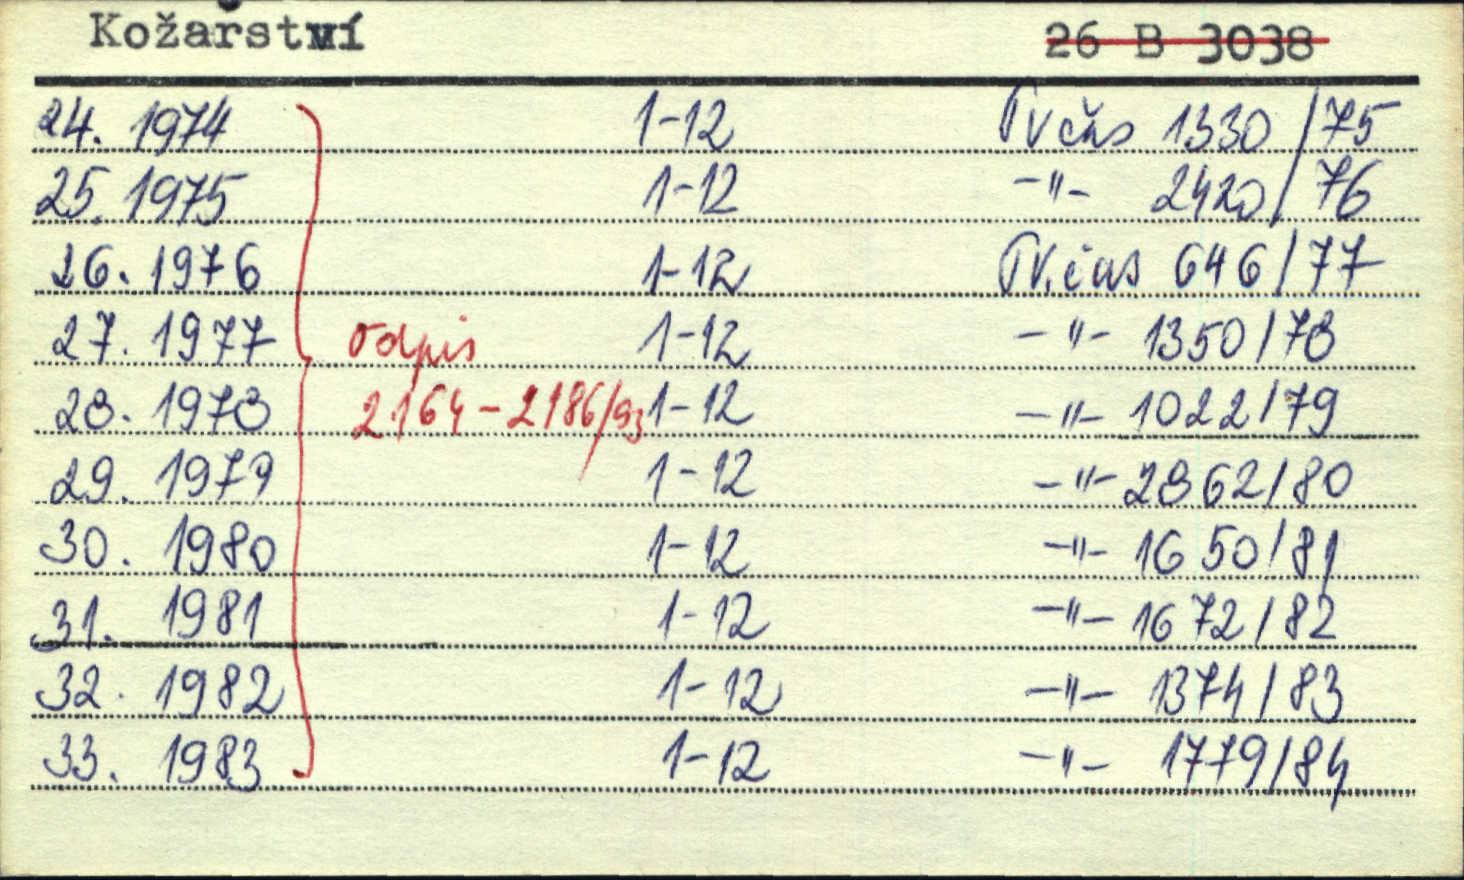 Kožařství 26 B 3038
24. 1974 1-12 Pv čas 1330/75
25. 1975 1-12 -"- 2420/76
26. 1976 1-12 Pv. čas 646/77
27. 1977 odpis 1-12 -"- 1350/78
28. 1978 2164-2186/93 1-12 -"- 1022/79
29. 1979 1-12 -"- 2862/80
30. 1980 1-12 -"- 1650/81
31. 1981 1-12 -"- 1672/82
32. 1982 1-12 -"- 1374/83
33. 1983 1-12 -"- 1779/84